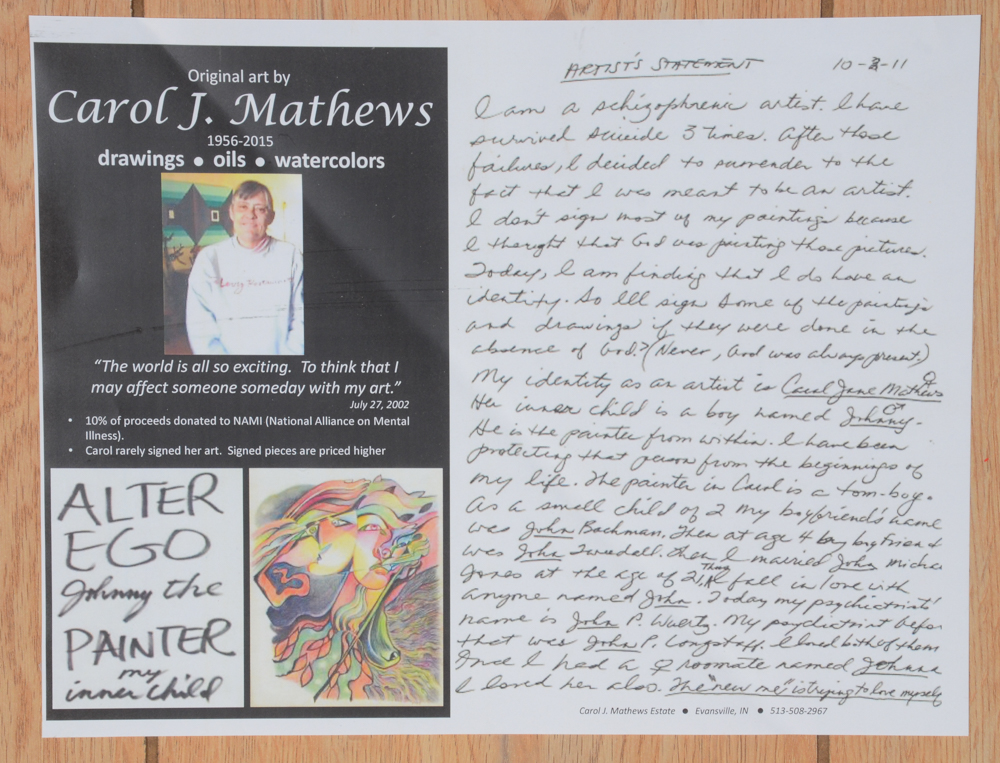 Original art by
Carol J. Mathews
1956-2015
drawings ● oils ● watercolors
“The world is all so exciting. To think that I
may affect someone someday with my art.”
July 27, 2002
• 10% of proceeds donated to NAMI (National Alliance on Mental
Illness).
• Carol rarely signed her art. Signed pieces are priced higher
ALTER
EGO
Johnny the
PAINTER
my
inner child
ARTIST'S STATEMENT 10-3-11
I am a schizophrenic artist. I have
survived suicide 3 times. After those
failures, I decided to surrender to the
fact that I was meant to be an artist.
I don't sign most of my paintings because
I thought that God was painting those pictures.
Today, I am finding that I do have an
identity. So I'll sign some of the paintings
and drawings if they were done in the
absence of God? (Never, God was always present)
My identity as an artist is Carol Jane Mathews
Her inner child is a boy named Johnny.
He is the painter from within. I have been
protecting that person from the beginnings of
my life. The painter in Carol is a tom-boy.
As a small child of 2 my boyfriend's name
was John Bachman. Then at age 4 boyfriend
was John Twedell. Then I married John
Jones at the age of 21. I fall in love with
anyone named John. Today my psychiatrist'
name is John P. Wuertz. My psychiatrist before
that was John P. Longstaff. I loved both of them
And I had a ♀ roomate named Johnna
I loved her also. The "new me" is trying to love myself
Carol J. Mathews Estate ● Evansville, IN ● 513-508-2967